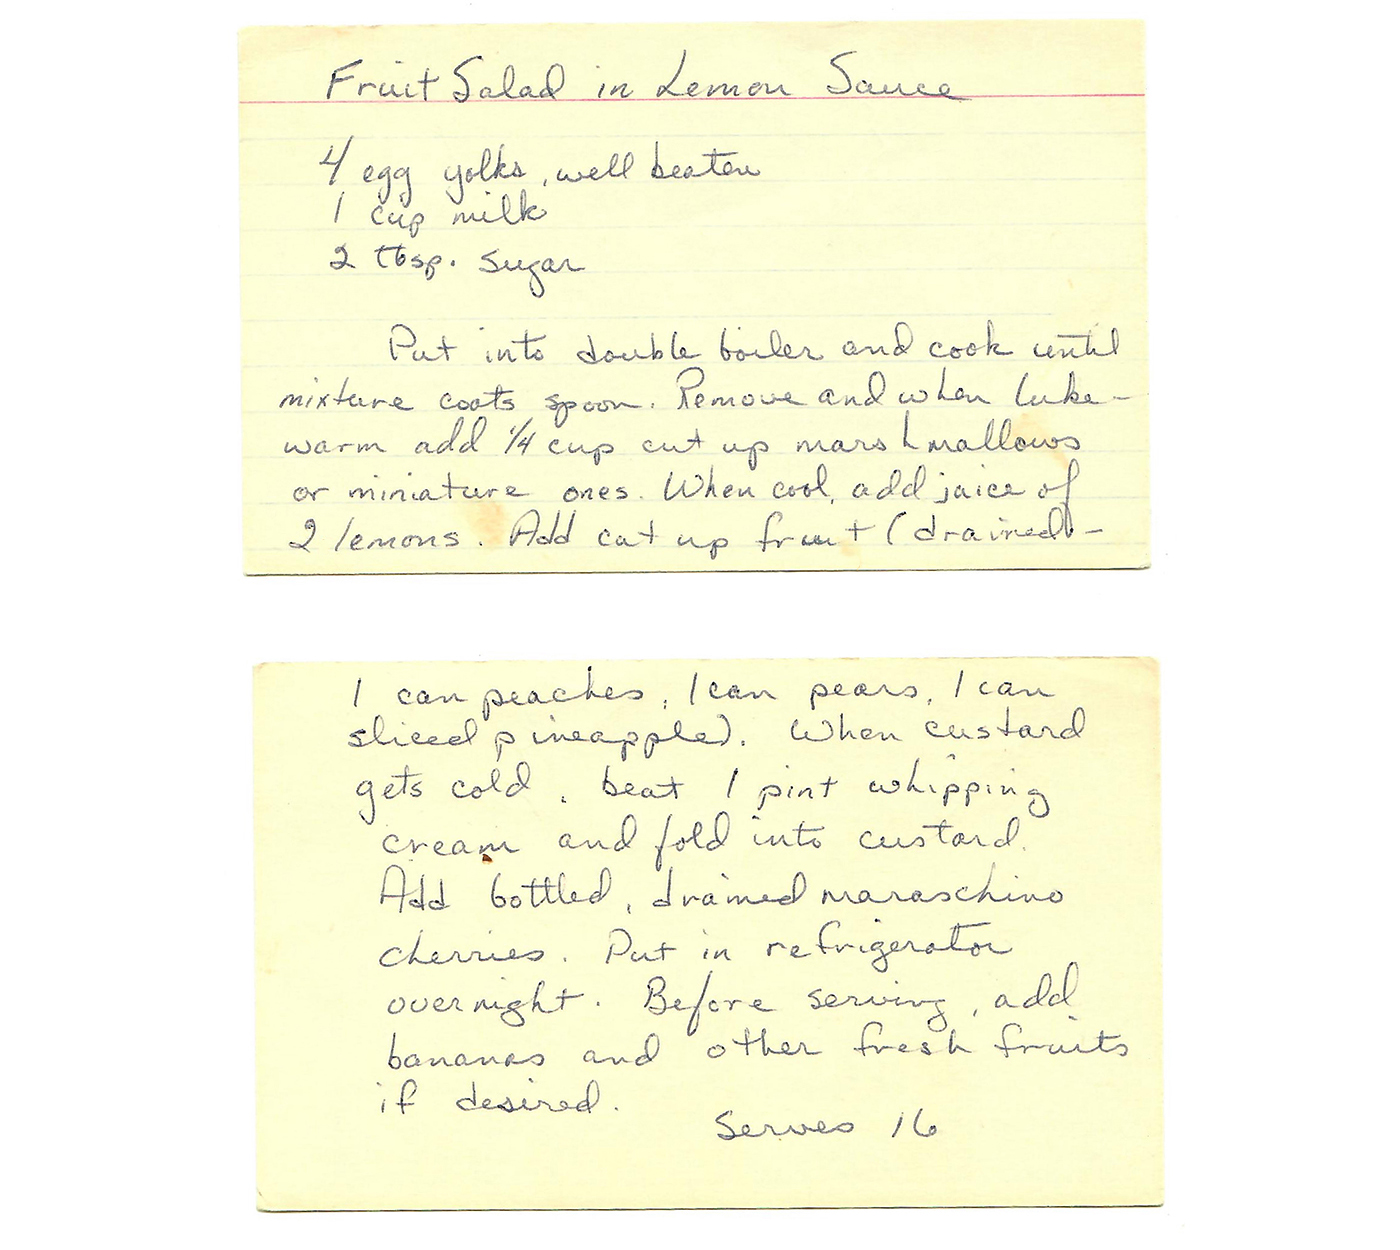 Fruit Salad in Lemon Sauce
4 egg yolks, well beaten
1 cup milk
2 tbsp. sugar
Put into double boiler and cook until
mixture coats spoon. Remove and when luke-
warm add 1/4 cup cut up marshmallows
or miniature ones. When cool, add juice of
2 lemons. Add cut up fruit (drained -
1 can peaches, 1 can pears, 1 can
sliced pineapple). When custard
gets cold, beat 1 pint whipping
cream and fold into custard.
Add bottled, drained maraschino
cherries. Put in refrigerator
overnight. Before serving, add
bananas and other fresh fruits
if desired.
Serves 16